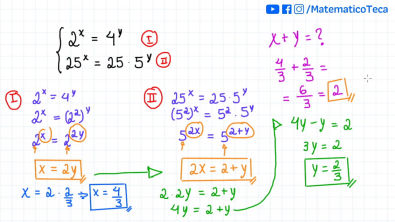 f /MatematicoTeca
2^x = 4^y I
25^x = 25 · 5^y II
x + y = ?
4/3 + 2/3 =
= 6/3 = 2
I 2^x = 4^y
2^x = (2^2)^y
2^x = 2^2y
x = 2y
x = 2 · 2/3 ∴ x = 4/3
II 25^x = 25 · 5^y
(5^2)^x = 5^2 · 5^y
5^2x = 5^2+y
2x = 2+y
2 · 2y = 2+y
4y = 2+y
4y - y = 2
3y = 2
y = 2/3